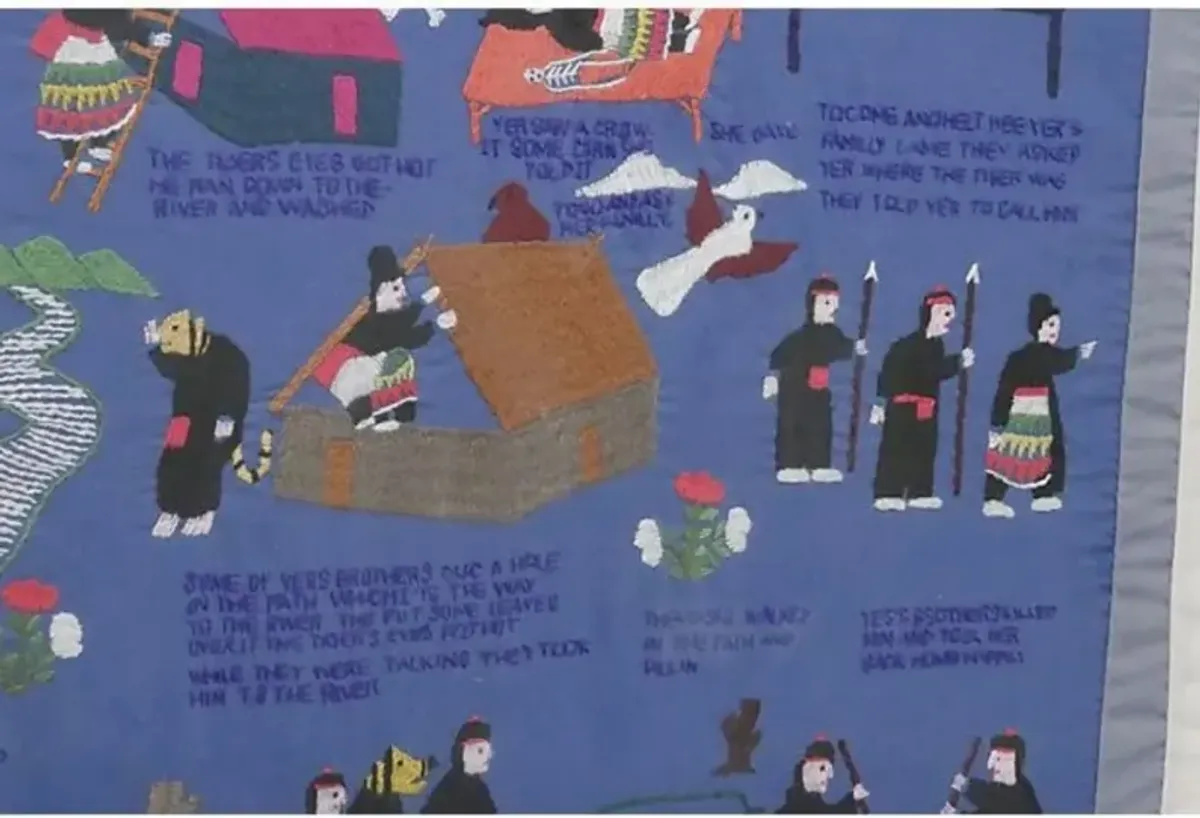 THE TIGERS EYES GOT HOT
HE RAN DOWN TO THE
RIVER AND WASHED
YER SAW A CROW.
IT SOME
TOLD IT
SHE GAVE
TO COME AND HELP HER YER'S
FAMILY CAME THEY ASKED
YER WHERE THE TIGER WAS
THEY TOLD YER TO CALL HIM
SOME OF YERS BROTHERS DUG A HOLE
IN THE PATH WHICH IS THE WAY
TO THE RIVER THE PUT SOME LEAVES
OVER IT THE TIGERS EYES GOT HOT
WHILE THEY WERE TALKING THEY TOOK
HIM TO THE RIVER
WALKED
IN THE PATH AND
FELL IN
YES'S BROTHERS KILLED
HIM AND TOOK HER
BACK HOME